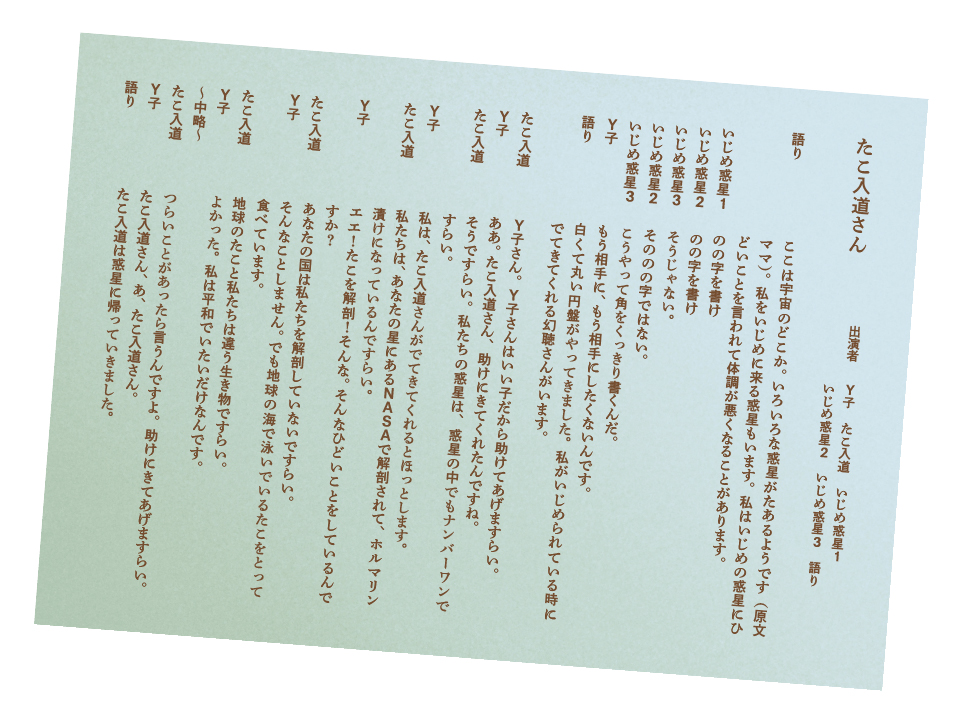 たこ入道さん
出演者　Y子　たこ入道　いじめ惑星1
いじめ惑星2　いじめ惑星3　語り
語り　ここは宇宙のどこか。いろいろな惑星がたあるようです（原文
ママ）。私をいじめに来る惑星もいます。私はいじめの惑星にひ
どいことを言われて体調が悪くなることがあります。
いじめ惑星1　のの字を書け
いじめ惑星2　のの字を書け
いじめ惑星3　そうじゃない。
いじめ惑星2　そののの字ではない。
いじめ惑星3　こうやって角をくっきり書くんだ。
Y子　もう相手に、もう相手にしたくないんです。
語り　白くて丸い円盤がやってきました。私がいじめられている時に
でてきてくれる幻聴さんがいます。
たこ入道　Y子さん。Y子さんはいい子だから助けてあげますらい。
Y子　ああ。たこ入道さん、助けにきてくれたんですね。
たこ入道　そうですらい。私たちの惑星は、惑星の中でもナンバーワンで
すらい。
Y子　私は、たこ入道さんがでてきてくれるとほっとします。
たこ入道　私たちは、あなたの星にあるNASAで解剖されて、ホルマリン
漬けになっているんですらい。
Y子　エエ！たこを解剖！そんな。そんなひどいことをしているんで
すか？
たこ入道　あなたの国は私たちを解剖していないですらい。
Y子　そんなことしません。でも地球の海で泳いでいるたこをとって
食べています。
たこ入道　地球のたこと私たちは違う生き物ですらい。
Y子　よかった。私は平和でいたいだけなんです。
〜中略〜
たこ入道　つらいことがあったら言うんですよ。助けにきてあげますらい。
Y子　たこ入道さん、あ、たこ入道さん。
語り　たこ入道は惑星に帰っていきました。